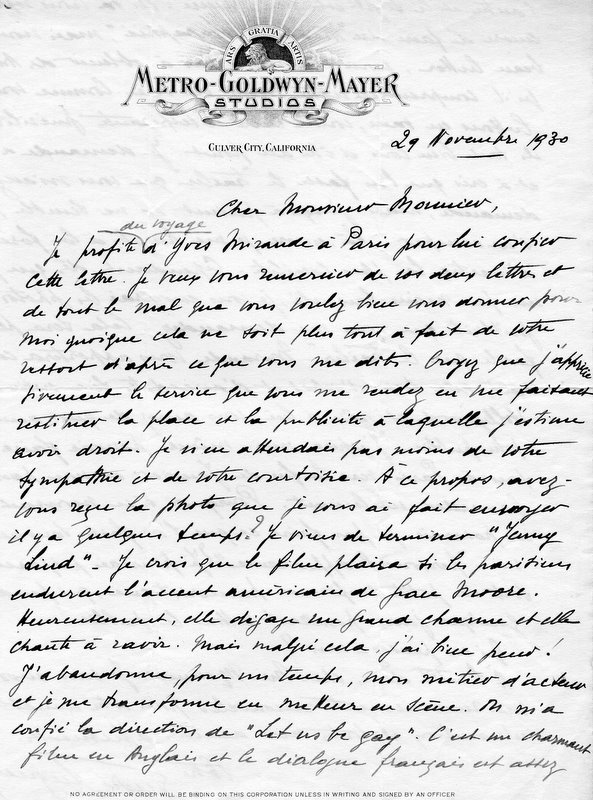 ARS GRATIA ARTIS
METRO-GOLDWYN-MAYER
STUDIOS
CULVER CITY, CALIFORNIA
29 Novembre 1930
Cher Monsieur Mounier,
du voyage
Je profite d'Yves Mirande à Paris pour lui confier
cette lettre. Je veux vous remercier de vos deux lettres et
de tout le mal que vous voulez bien vous donner pour
moi quoique cela ne soit plus tout à fait de votre
ressort d'après ce que vous me dites. Croyez que j'apprécie
vivement le service que vous me rendez en me faisant
restituer la place et la publicité à laquelle j'estime
avoir droit. Je n'en attendais pas moins de votre
sympathie et de votre courtoisie. À ce propos, avez-
vous reçu la photo que je vous ai fait envoyer
il y a quelques temps? Je viens de terminer "Jenny
Lind". Je crois que le film plaira si les parisiens
endurent l'accent américain de Grace Moore.
Heureusement, elle dégage un grand charme et elle
chante à ravir. Mais malgré cela, j'ai bien peur!
J'abandonne, pour un temps, mon métier d'acteur
et je me transforme en metteur en scène. On m'a
confié la direction de "Let us be gay". C'est un charmant
film en Anglais et le dialogue français est assez
NO AGREEMENT OR ORDER WILL BE BINDING ON THIS CORPORATION UNLESS IN WRITING AND SIGNED BY AN OFFICER